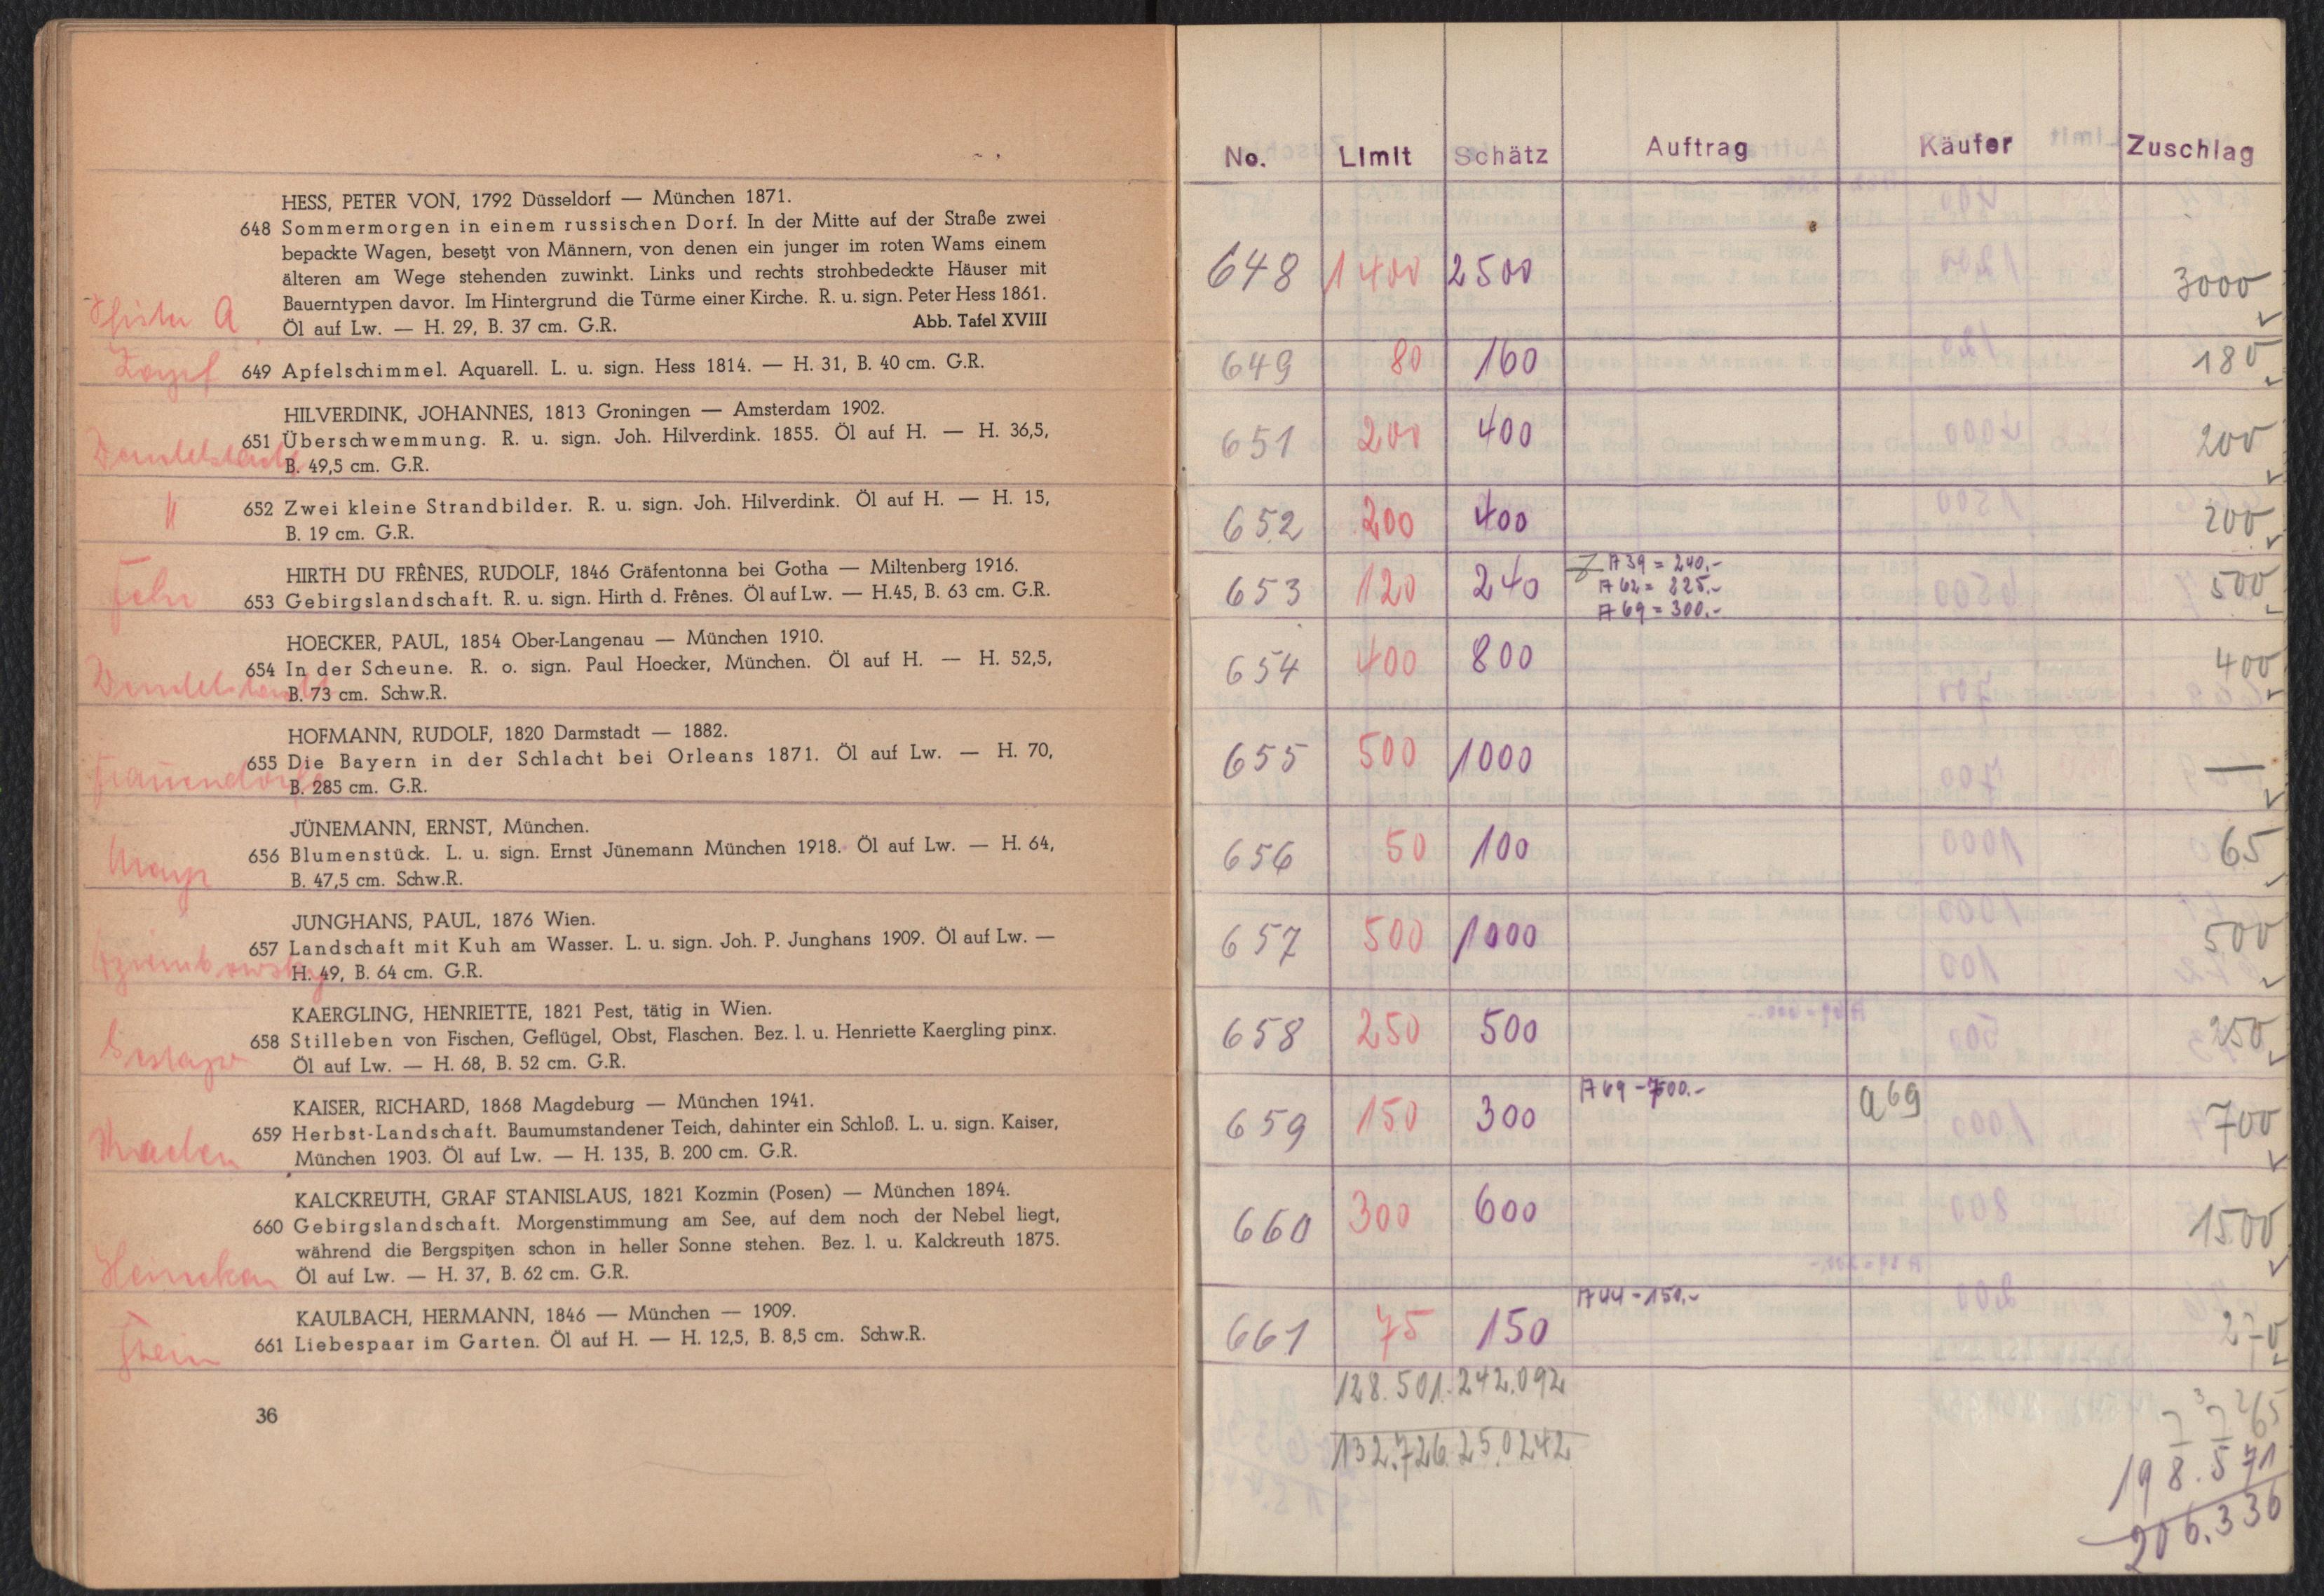 HESS, PETER VON, 1792 Düsseldorf — München 1871.
648 Sommermorgen in einem russischen Dorf. In der Mitte auf der Straße zwei
bepackte Wagen, besetzt von Männern, von denen ein junger im roten Wams einem
älteren am Wege stehenden zuwinkt. Links und rechts strohbedeckte Häuser mit
Bauerntypen davor. Im Hintergrund die Türme einer Kirche. R. u. sign. Peter Hess 1861.
Öl auf Lw. — H. 29, B. 37 cm. G.R. Abb. Tafel XVIII
649 Apfelschimmel. Aquarell. L. u. sign. Hess 1814. — H. 31, B. 40 cm. G.R.
HILVERDINK, JOHANNES, 1813 Groningen — Amsterdam 1902.
651 Überschwemmung. R. u. sign. Joh. Hilverdink. 1855. Öl auf H. — H. 36,5,
B. 49,5 cm. G.R.
652 Zwei kleine Strandbilder. R. u. sign. Joh. Hilverdink. Öl auf H. — H. 15,
B. 19 cm. G.R.
HIRTH DU FRÊNES, RUDOLF, 1846 Gräfentonna bei Gotha — Miltenberg 1916.
653 Gebirgslandschaft. R. u. sign. Hirth d. Frênes. Öl auf Lw. — H.45, B. 63 cm. G.R.
HOECKER, PAUL, 1854 Ober-Langenau — München 1910.
654 In der Scheune. R. o. sign. Paul Hoecker, München. Öl auf H. — H. 52,5,
B. 73 cm. Schw.R.
HOFMANN, RUDOLF, 1820 Darmstadt — 1882.
655 Die Bayern in der Schlacht bei Orleans 1871. Öl auf Lw. — H. 70,
B. 285 cm. G.R.
JÜNEMANN, ERNST, München.
656 Blumenstück. L. u. sign. Ernst Jünemann München 1918. Öl auf Lw. — H. 64,
B. 47,5 cm. Schw.R.
JUNGHANS, PAUL, 1876 Wien.
657 Landschaft mit Kuh am Wasser. L. u. sign. Joh. P. Junghans 1909. Öl auf Lw. —
H. 49, B. 64 cm. G.R.
KAERGLING, HENRIETTE, 1821 Pest, tätig in Wien.
658 Stilleben von Fischen, Geflügel, Obst, Flaschen. Bez. l. u. Henriette Kaergling pinx.
Öl auf Lw. — H. 68, B. 52 cm. G.R.
KAISER, RICHARD, 1868 Magdeburg — München 1941.
659 Herbst-Landschaft. Baumumstandener Teich, dahinter ein Schloß. L. u. sign. Kaiser,
München 1903. Öl auf Lw. — H. 135, B. 200 cm. G.R.
KALCKREUTH, GRAF STANISLAUS, 1821 Kozmin (Posen) — München 1894.
660 Gebirgslandschaft. Morgenstimmung am See, auf dem noch der Nebel liegt,
während die Bergspitzen schon in heller Sonne stehen. Bez. l. u. Kalckreuth 1875.
Öl auf Lw. — H. 37, B. 62 cm. G.R.
KAULBACH, HERMANN, 1846 — München — 1909.
661 Liebespaar im Garten. Öl auf H. — H. 12,5, B. 8,5 cm. Schw.R.
Stein
36
No. Limit Schätz Auftrag Käufer Zuschlag
648 1400 2500 3000
649 80 160 180
651 200 400 200
652 200 400 200
653 120 240 A 39 = 240.- 500
A 62 = 225.-
A 69 = 300.-
654 400 800 400
655 500 1000 —
656 50 100 65
657 500 1000 500
658 250 500 250
659 150 300 A 69 - 700.- a 69 700
660 300 600 1500
661 75 150 A 44 - 150.-
128.501. 242.092
132.726. 250242
198.571
206.336